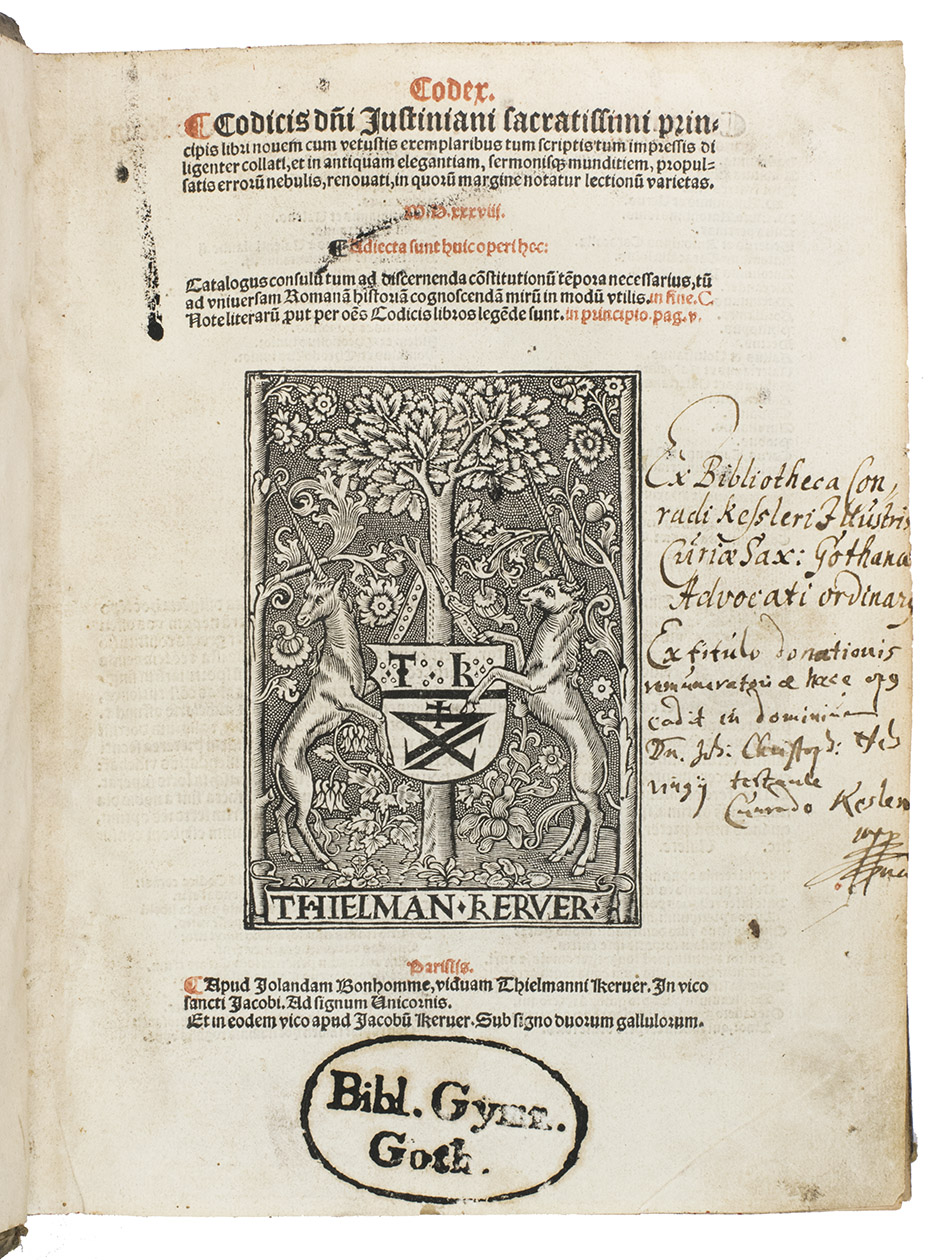 Codex.
Codicis dñi Justiniani sacratissimi prin-
cipis libri nouem cum vetustis exemplaribus tum scriptis tum impressis di
ligenter collati, et in antiquam elegantiam, sermonisq; munditiem, propul-
satis errorū nebulis, renouati, in quorū margine notatur lectionū varietas.
M.D.xxxviij.
Adiecta sunt huic operi hec:
Catalogus consulū tum ad discernenda cōstitutionū tēpora necessarius, tū
ad vniuersam Romanā historiā cognoscendā mirū in modū vtilis. in fine. C.
Note literarū ꝓut per oēs Codicis libros legēde sunt. in principio. pag. v.
T K
THIELMAN·KERVER·
Ex Bibliotheca Con,
radi Kessleri Illustris
Curiæ Sax: Gothanæ
Advocati ordinarij
Ex titulo donationis
remuneratoriæ hoc
cadit in dominium
Dn. Joh: Christoph:
testante
Cunrado Keslero
Parisiis.
Apud Jolandam Bonhomme, viduam Thielmanni Keruer. In vico
sancti Jacobi. Ad signum Unicornis.
Et in eodem vico apud Jacobū Keruer. Sub signo duorum gallulorum.
Bibl. Gymn.
Goth.